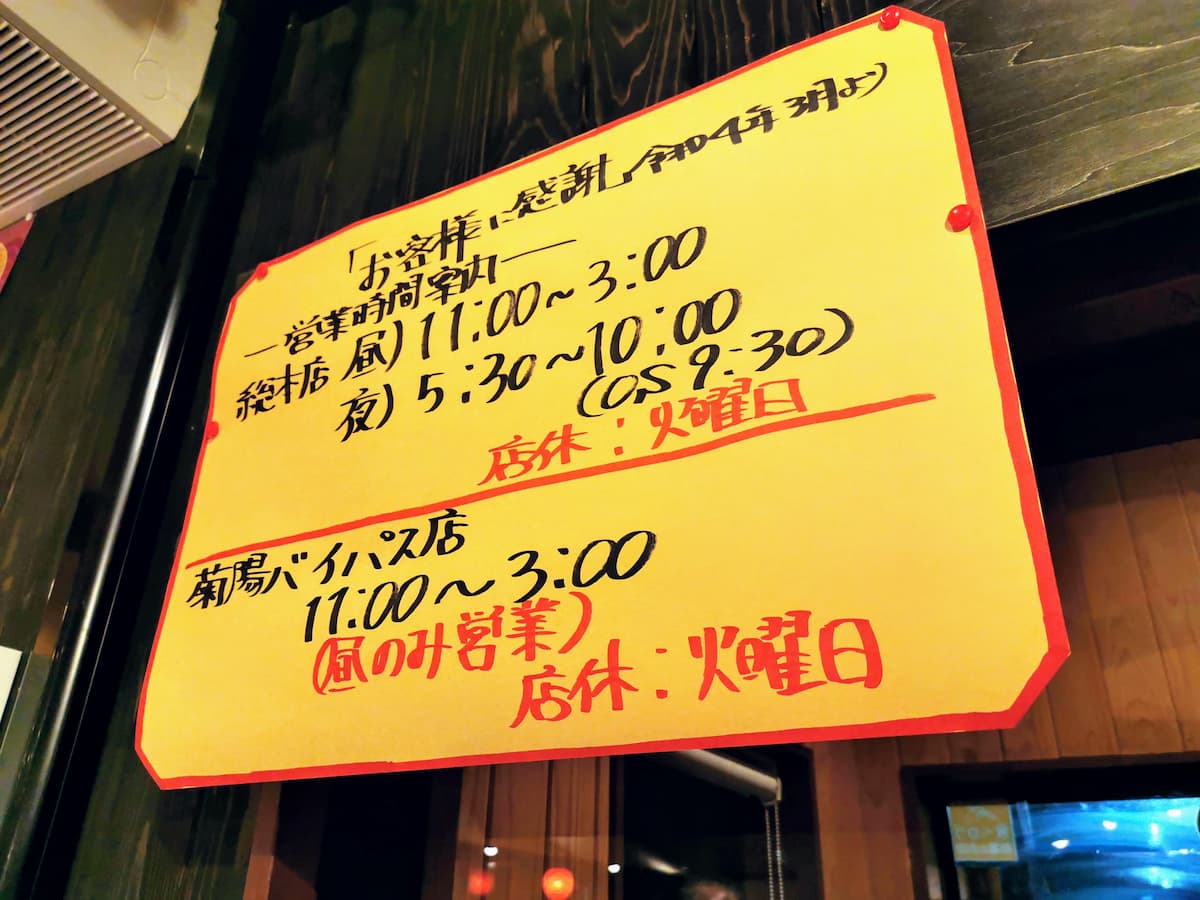 「お客様に感謝」令和4年3月より
―営業時間案内―
総本店 昼)11:00～3:00
夜)5:30～10:00
(OS 9:30)
店休:火曜日
菊陽バイパス店
11:00～3:00
(昼のみ営業)
店休:火曜日